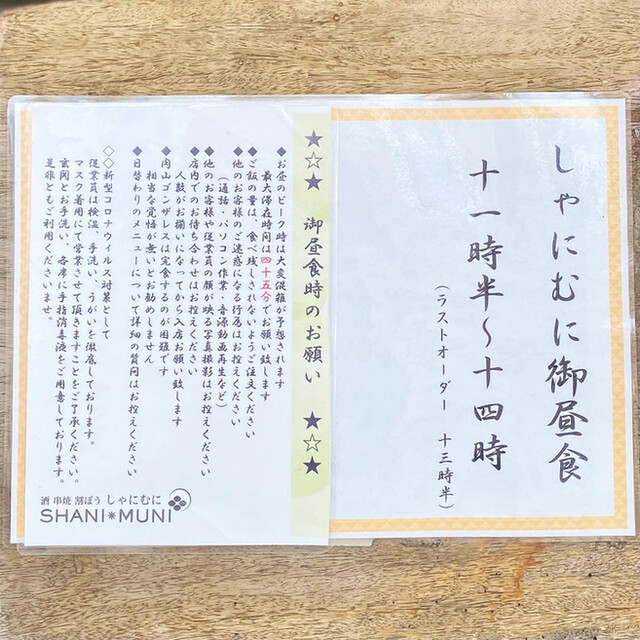 しゃにむに御昼食
十一時半～十四時
（ラストオーダー　十三時半）
★☆★　御昼食時のお願い　★☆★
◆お昼のピーク時は大変混雑が予想されます
最大滞在時間は四十五分でお願い致します
◆ご飯の量は、食べ残しされないようご注文ください
◆他のお客様のご迷惑になる行為はお控えください
（通話・パソコン作業・音源動画再生など）
◆他のお客様や従業員の顔が映る写真撮影はお控えください
◆店内でのお待ち合わせはお控えください
人数がお揃いになってから入店お願い致します
◆肉山ゴンザレスは完食するのが困難です
相当な覚悟が無いとお勧めしません
◆日替わりのメニューについて詳細の質問はお控えください
◇◇新型コロナウィルス対策として
従業員は検温、手洗い、うがいを徹底しております。
マスク着用にて営業させて頂きますことをご了承ください。
玄関とお手洗い、各席に手指消毒液をご用意しております。
是非ともご利用くださいませ。
酒 串焼 割ぽう しゃにむに
SHANI＊MUNI